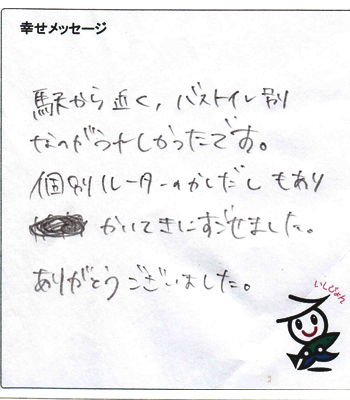 幸せメッセージ
駅から近く，バストイレ別
なのがうれしかったです。
個別ルーターのかしだしもあり
かいてきにすごせました。
ありがとうございました。
いしじょん